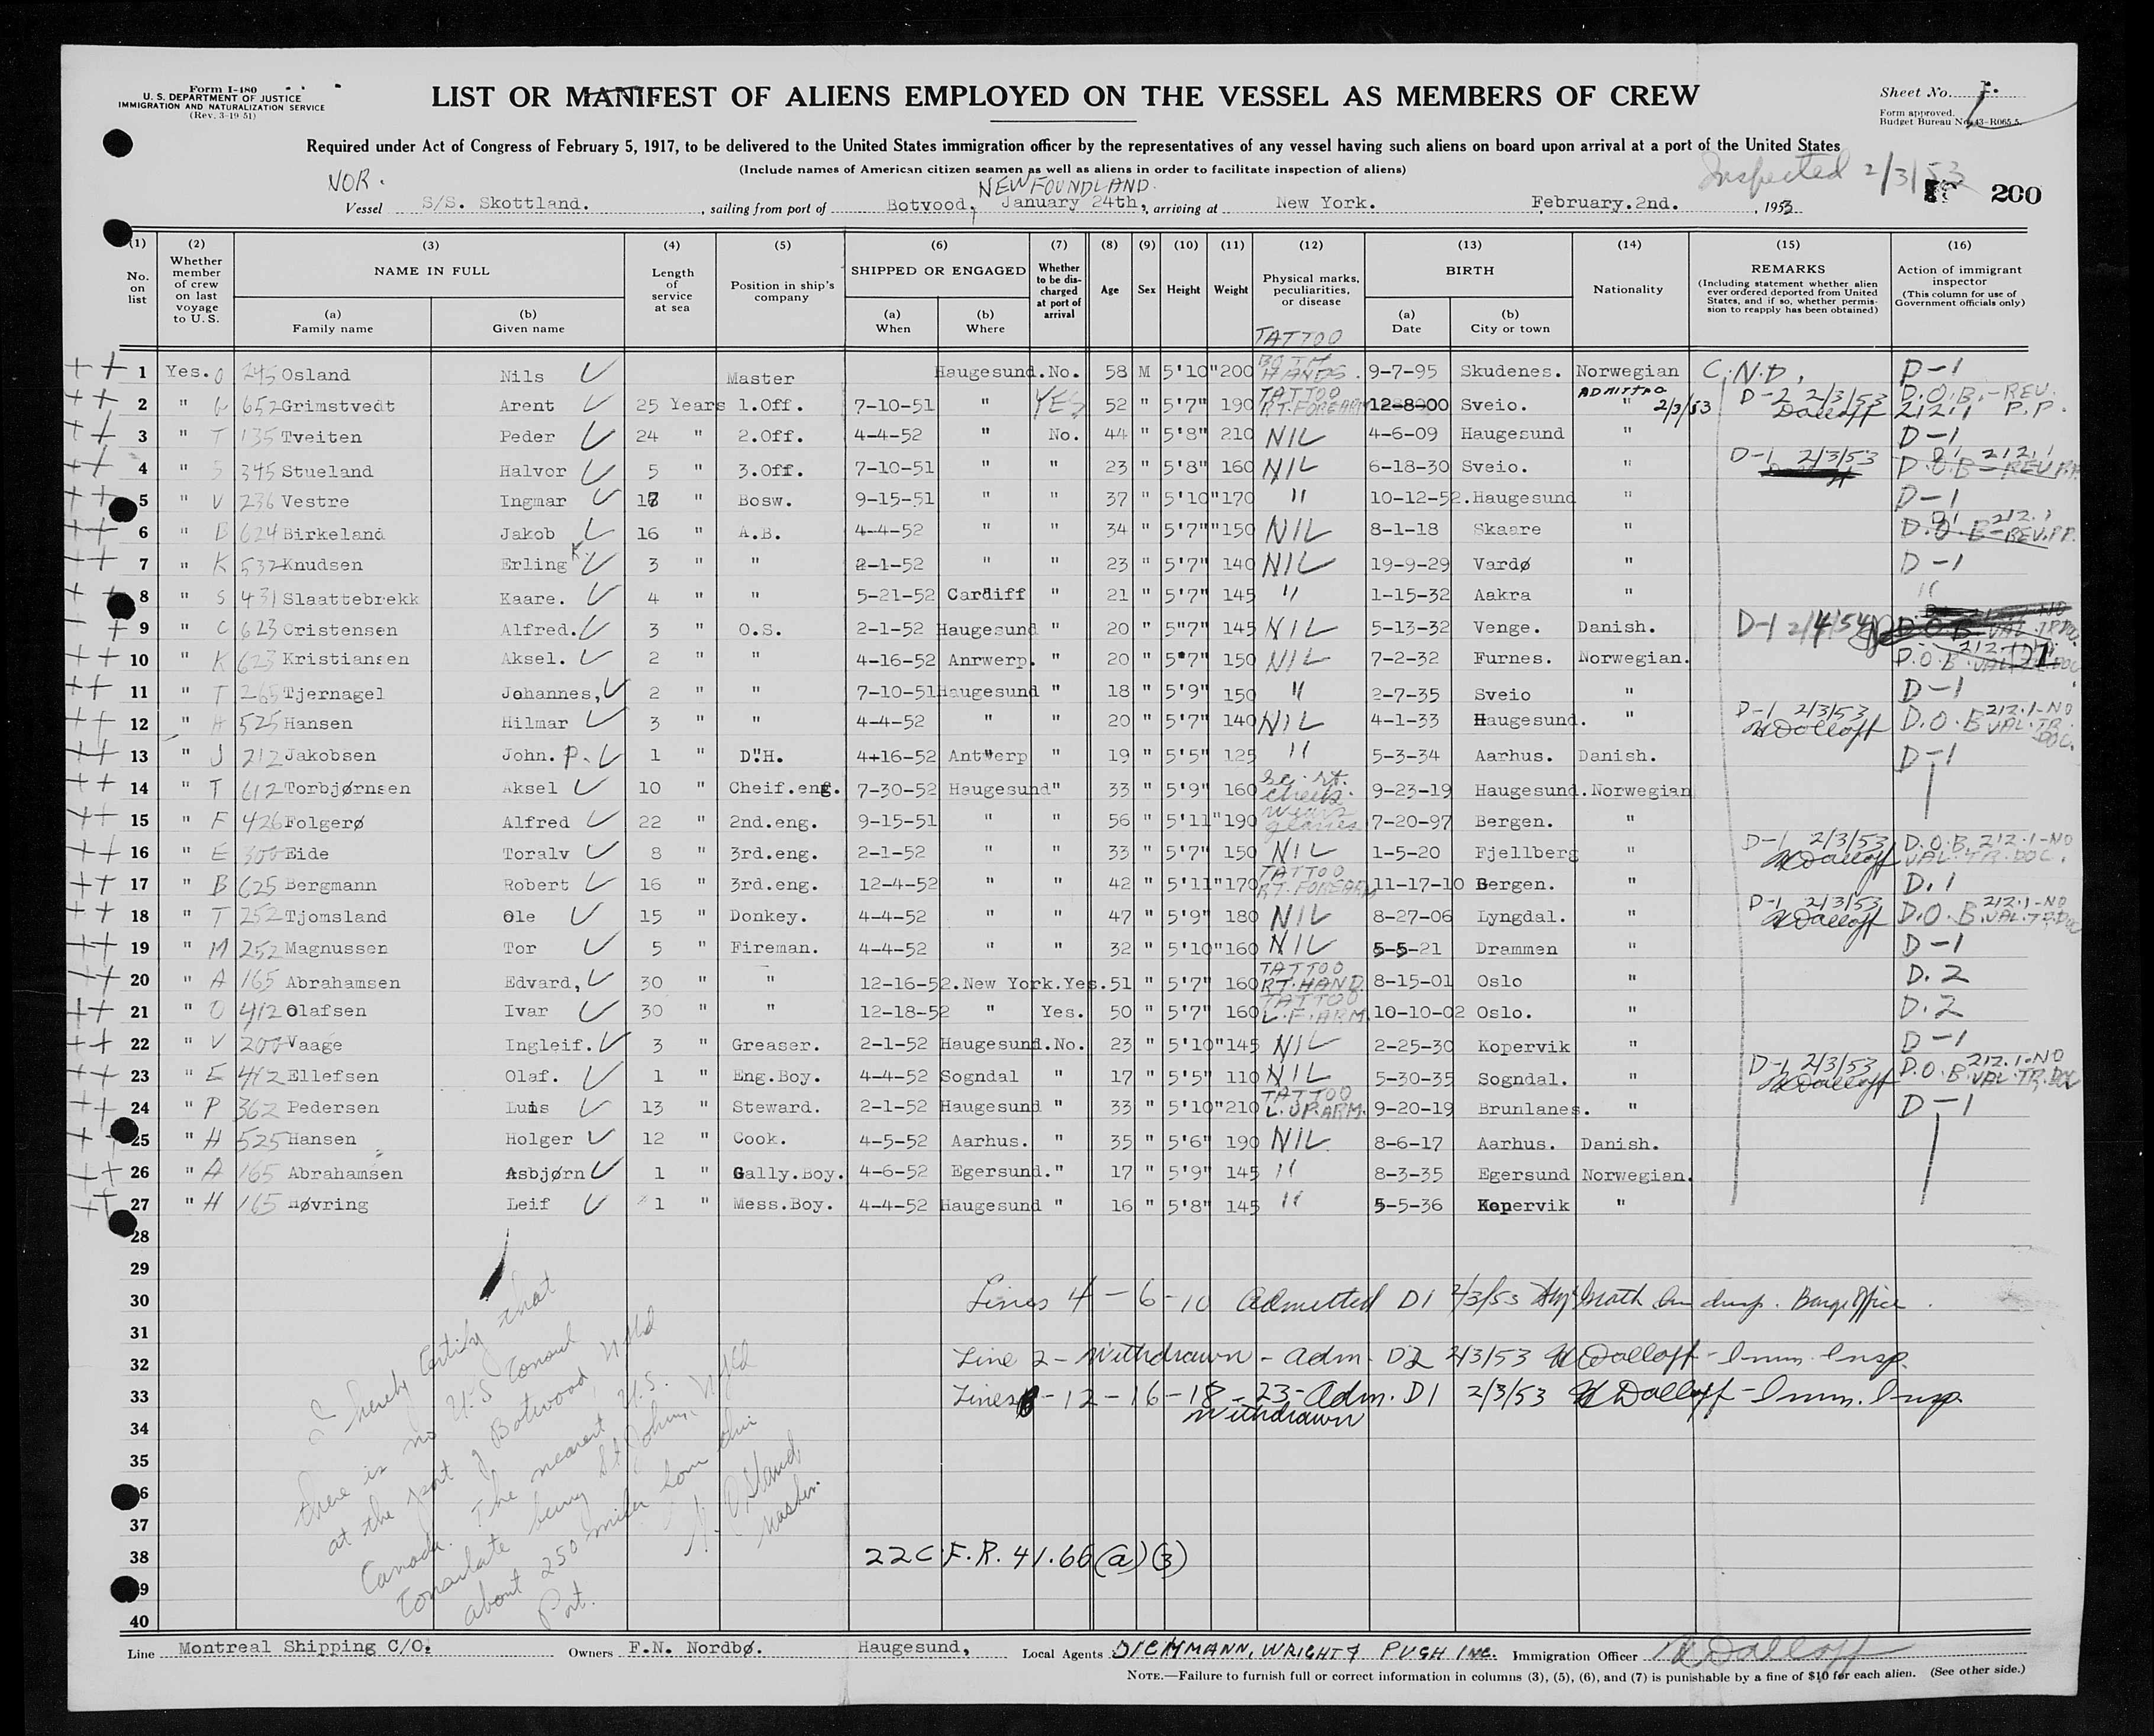 Form I-480
U. S. DEPARTMENT OF JUSTICE
IMMIGRATION AND NATURALIZATION SERVICE
(Rev. 3-19-51)
LIST OR MANIFEST OF ALIENS EMPLOYED ON THE VESSEL AS MEMBERS OF CREW
Sheet No.
Form approved.
Budget Bureau No. 43-R065.5.
Required under Act of Congress of February 5, 1917, to be delivered to the United States immigration officer by the representatives of any vessel having such aliens on board upon arrival at a port of the United States
(Include names of American citizen seamen as well as aliens in order to facilitate inspection of aliens)
Inspected 2/3/53
200
NOR. NEWFOUNDLAND.
Vessel S/S. Skottland. , sailing from port of Botvood, January 24th, arriving at New York. February.2nd. , 1953
(1) (2) (3) (4) (5) (6) (7) (8) (9) (10) (11) (12) (13) (14) (15) (16)
No. on list
Whether member of crew on last voyage to U. S.
NAME IN FULL
(a) Family name
(b) Given name
Length of service at sea
Position in ship's company
SHIPPED OR ENGAGED
(a) When
(b) Where
Whether to be discharged at port of arrival
Age
Sex
Height
Weight
Physical marks, peculiarities, or disease
BIRTH
(a) Date
(b) City or town
Nationality
REMARKS
(Including statement whether alien ever ordered deported from United States, and if so, whether permission to reapply has been obtained)
Action of immigrant inspector
(This column for use of Government officials only)
1 Yes. O 245 Osland Nils Master Haugesund. No. 58 M 5'10" 200 TATTOO BOTH HANDS. 9-7-95 Skudenes. Norwegian C.N.D. D-1
2 " G 652 Grimstvedt Arent 25 Years 1.Off. 7-10-51 " YES 52 " 5'7" 190 TATTOO RT. FOREARM 12-8-00 Sveio. " ADMITTED 2/3/53 D-2 2/3/53 Dalloff D.O.B.-REV. 212.1 P.P.
3 " T 135 Tveiten Peder 24 " 2.Off. 4-4-52 " No. 44 " 5'8" 210 NIL 4-6-09 Haugesund " D-1
4 " S 345 Stueland Halvor 5 " 3.Off. 7-10-51 " " 23 " 5'8" 160 NIL 6-18-30 Sveio. " D-1 2/3/53 D.O.B-REV.PP. D1 212.1
5 " V 236 Vestre Ingmar 17 " Bosw. 9-15-51 " " 37 " 5'10" 170 " 10-12-52. Haugesund " D-1
6 " B 624 Birkeland Jakob 16 " A.B. 4-4-52 " " 34 " 5'7" 150 NIL 8-1-18 Skaare " D.O.B-REV.P.P. D1 212.1
7 " K 532 Knudsen Erling K. 3 " " 2-1-52 " " 23 " 5'7" 140 NIL 19-9-29 Vardø " D-1
8 " S 431 Slaattebrekk Kaare. 4 " " 5-21-52 Cardiff " 21 " 5'7" 145 " 1-15-32 Aakra " "
9 " C 623 Cristensen Alfred. 3 " O.S. 2-1-52 Haugesund " 20 " 5"7" 145 NIL 5-13-32 Venge. Danish. D-1 2/4/54
10 " K 623 Kristiansen Aksel. 2 " " 4-16-52 Anrwerp. " 20 " 5"7" 150 NIL 7-2-32 Furnes. Norwegian. D.O.B.
11 " T 265 Tjernagel Johannes, 2 " " 7-10-51 Haugesund " 18 " 5'9" 150 " 2-7-35 Sveio " D-1
12 " H 525 Hansen Hilmar 3 " " 4-4-52 " " 20 " 5'7" 140 NIL 4-1-33 Haugesund. " D-1 2/3/53 Dalloff D.O.B 212.1-NO VAL.TR. DOC.
13 " J 212 Jakobsen John. P. 1 " D"H. 4+16-52 Antwerp " 19 " 5'5" 125 " 5-3-34 Aarhus. Danish. D-1
14 " T 612 Torbjørnsen Aksel 10 " Cheif.eng. 7-30-52 Haugesund " 33 " 5'9" 160 sc. rt. cheek. 9-23-19 Haugesund. Norwegian
15 " F 426 Folgerø Alfred 22 " 2nd.eng. 9-15-51 " " 56 " 5'11" 190 wears glasses 7-20-97 Bergen. "
16 " E 300 Eide Toralv 8 " 3rd.eng. 2-1-52 " " 33 " 5'7" 150 NIL 1-5-20 Fjellberg " D-1 2/3/53 Dalloff D.O.B. 212.1-NO VAL.TR.DOC.
17 " B 625 Bergmann Robert 16 " 3rd.eng. 12-4-52 " " 42 " 5'11" 170 TATTOO RT. FOREARM 11-17-10 Bergen. " D.1
18 " T 252 Tjomsland Ole 15 " Donkey. 4-4-52 " " 47 " 5'9" 180 NIL 8-27-06 Lyngdal. " D-1 2/3/53 Dalloff D.O.B. 212.1-NO VAL.TR.DOC
19 " M 252 Magnussen Tor 5 " Fireman. 4-4-52 " " 32 " 5'10" 160 NIL 5-5-21 Drammen " D-1
20 " A 165 Abrahamsen Edvard, 30 " " 12-16-52. New York. Yes. 51 " 5'7" 160 TATTOO RT. HAND. 8-15-01 Oslo " D.2
21 " O 412 Olafsen Ivar 30 " " 12-18-52 " Yes. 50 " 5'7" 160 TATTOO L.F.ARM. 10-10-02 Oslo. " D.2
22 " V 200 Vaage Ingleif. 3 " Greaser. 2-1-52 Haugesund. No. 23 " 5'10" 145 NIL 2-25-30 Kopervik " D-1
23 " E 412 Ellefsen Olaf. 1 " Eng.Boy. 4-4-52 Sogndal " 17 " 5'5" 110 NIL 5-30-35 Sogndal. " D-1 2/3/53 Dalloff D.O.B. 212.1-NO VAL.TR.DOC
24 " P 362 Pedersen Luis 13 " Steward. 2-1-52 Haugesund " 33 " 5'10" 210 TATTOO L. UP.ARM. 9-20-19 Brunlanes. " D-1
25 " H 525 Hansen Holger 12 " Cook. 4-5-52 Aarhus. " 35 " 5'6" 190 NIL 8-6-17 Aarhus. Danish.
26 " A 165 Abrahamsen Asbjørn 1 " Gally.Boy. 4-6-52 Egersund. " 17 " 5'9" 145 " 8-3-35 Egersund Norwegian.
27 " H 165 Høvring Leif 1 " Mess.Boy. 4-4-52 Haugesund " 16 " 5'8" 145 " 5-5-36 Kopervik "
28
29
30 Lines 4 - 6 - 10 Admitted D1 2/3/53 Imm Insp. Barge Office.
31
32 Line 2 - Withdrawn - Adm. D2 2/3/53 Dalloff - Imm. Insp.
33 Lines - 12 - 16 - 18 - 23 - Adm. D1 2/3/53 Dalloff - Imm. Insp.
Withdrawn
34
35
36
37
38 22 C.F.R. 41.66 (a)(3)
39
40
I hereby certify that
there is no U.S Consul
at the port of Botwood, Nfld
Canada. The nearest U.S.
Consulate being St. Johns, Nfld
about 250 miles from this
Port.
N. Osland
Master.
Line Montreal Shipping C/O. Owners F.N. Nordbø. Haugesund, Local Agents DICHMANN, WRIGHT & PUGH INC. Immigration Officer Dalloff
NOTE.—Failure to furnish full or correct information in columns (3), (5), (6), and (7) is punishable by a fine of $10 for each alien. (See other side.)